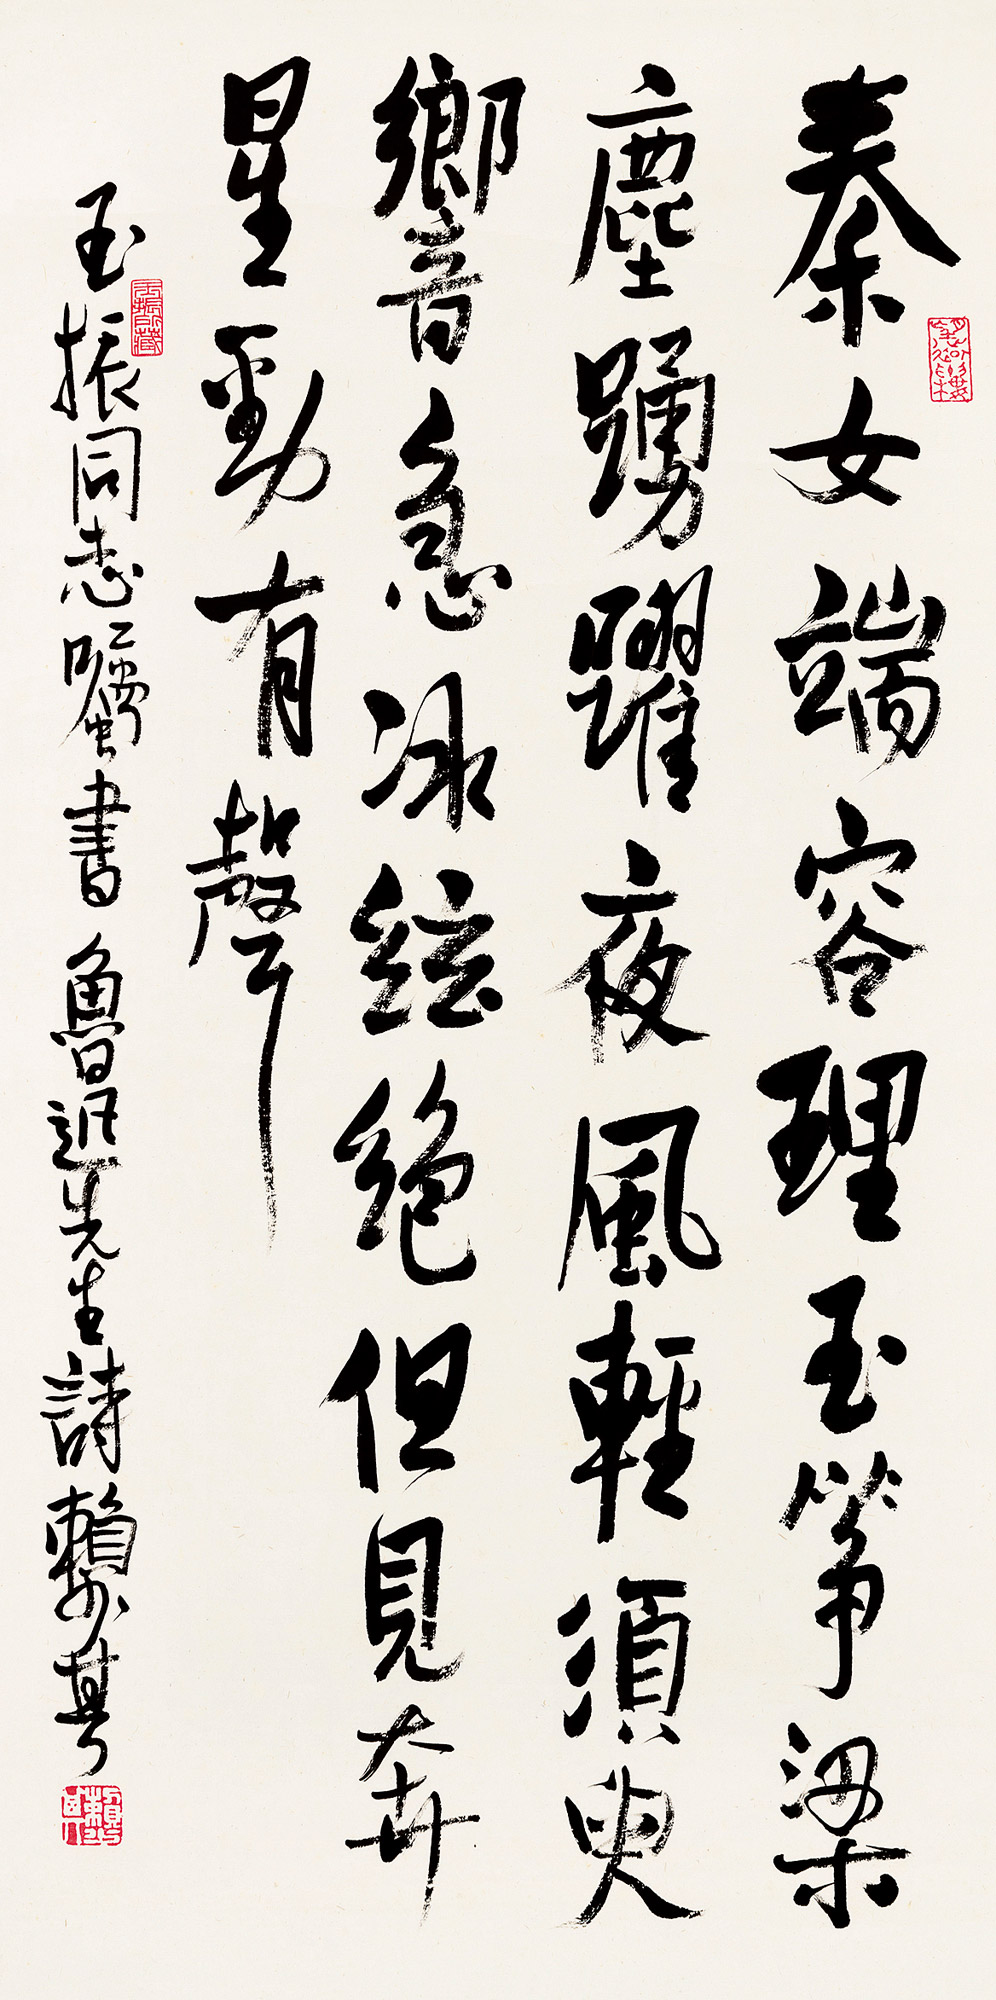 秦女端容理玉箏梁
塵踴躍夜風輕須臾
響急冰絃絕但見奔
星勁有聲
玉振同志囑書 魯迅先生詩 賴少其
玉振所藏